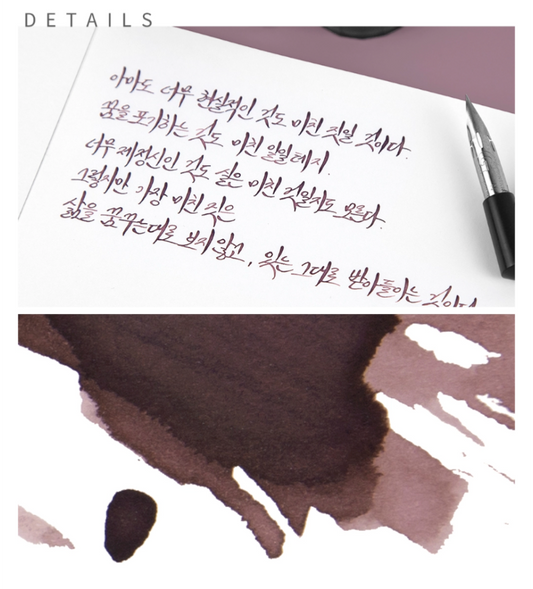 DETAILS
아마도 너무 현실적인 것도 미친 짓일 것이다.
꿈을 포기하는 것도 미친 일일테지.
너무 제정신인 것도 실은 미친 것일지도 모른다.
그렇지만 가장 미친 짓은
삶을 꿈꾸는대로 보지않고, 있는 그대로 받아들이는 것이다